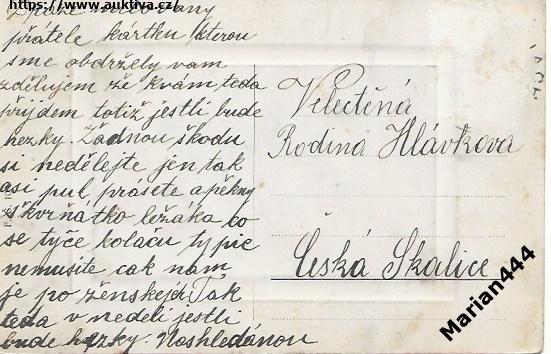 https://www.auktiva.cz/
přátele kartku kterou
sme obdržely vam
zdělujem že kvám teda
přijdem totiž jestli bude
hezky. Žádnou škodu
si nedělejte jen tak
asi pul prasete apěkny
škvrňátko ležáka co
se tyče koláču ty pic
nemusite cak nam
je po ženskejch Tak
teda v neděli jestli
bude hezky. Nashledánou
Velectěná
Rodina Hlávkova
Česká Skalice
Marian444